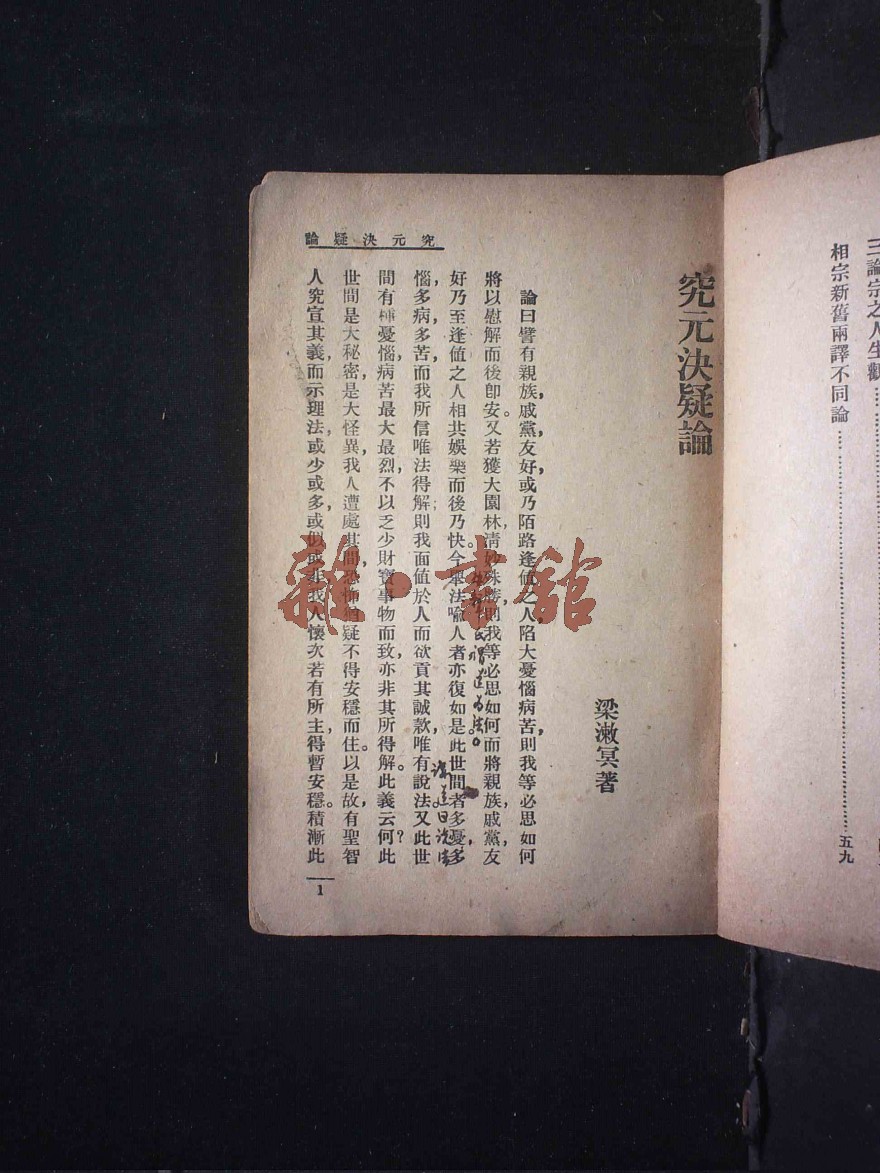 三論宗之人生觀
相宗新舊兩譯不同論 五九
究元決疑論
梁漱冥著
論曰譬有親族,戚黨友好,或乃陌路逢值之人,陷大憂惱病苦,則我等必思如何
將以慰解而後卽安。又若獲大園林,淸妙殊勝,則我等必思如何而將親族,戚黨友
好乃至逢値之人相共娛樂而後乃快。今舉法喩人者亦復如是。此世間者多憂,多
惱,多病,多苦而我所信唯法得解則我面値於人而欲貢其誠款,唯有說法。又此世
間有種憂惱,病苦最大最烈,不以乏少財寶事物而致,亦非其所得解。此義云何?此
世間是大秘密,是大怪異,我人遭處其間,恐怖猶疑不得安穩而住。以是故,有聖智
人究宣其義,而示理法,或少或多,或似或非,我人懷次若有所主,得暫安穩。積漸此
究元決疑論
1
雜·書館